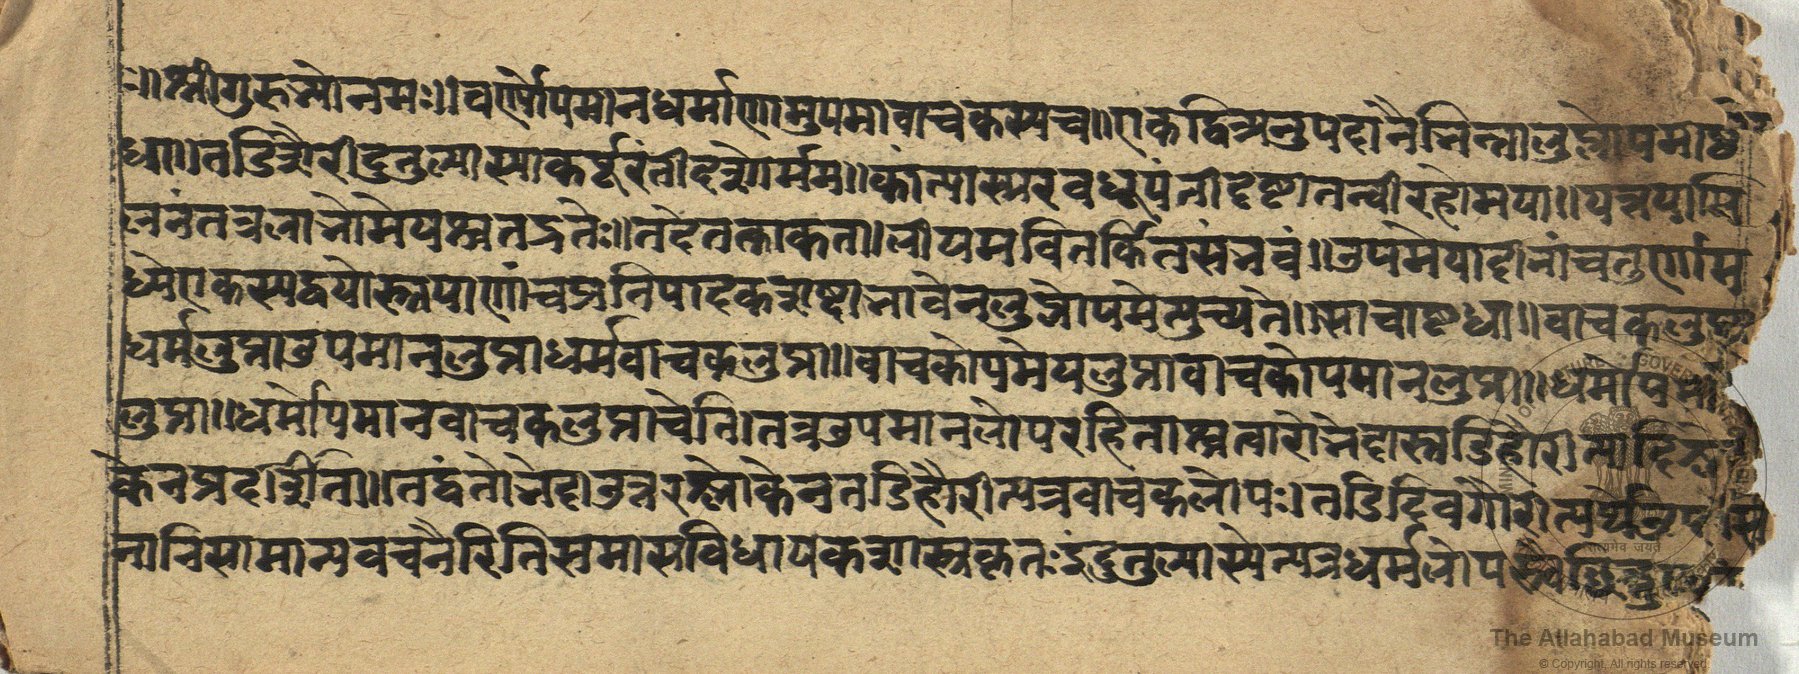 ॥श्रीगुरुभ्योनमः॥वर्ण्योपमानधर्माणामुपमावाचकस्यच॥एकद्वित्र्यनुपादानैर्भिन्नालुप्तोपमाष्ट
धा॥तडिद्गौरीदुतुल्यास्याकर्पूरंतीदृशोर्मम॥कांत्यास्मरवधूयंतीदृष्टातन्वीरहोमया॥यत्तयामि
लनंतत्रलाभोमेयश्चतद्रतेः॥तदेतत्काकता॥लीयमवितर्कितसंनवं॥उपमेयादीनांचतुर्णाम
ध्येएकस्यद्वयोस्त्रयाणांचप्रतिपादकशब्दाभावेनलुप्तोपमेत्युच्यते॥साचाष्टधा॥वाचकलुप्ता
धर्मलुप्ताउपमानलुप्ताधर्मवाचकलुप्ता॥वाचकोपमेयलुप्तावाचकोपमानलुप्ता॥धर्मोपमान
लुप्ता॥धर्मोपमानवाचकलुप्ताचेति।तत्रउपमानलोपरहिताश्चत्वारोभेदास्तडिद्गौरीत्यादिश्लो
केनप्रदर्शिता॥तद्वंतोभेदाउत्तरश्लोकेनतडिद्गौरीत्यत्रवाचकलोपः।तडिदिवगौरीत्यर्थे
नानिसामान्यवचनैरितिसमासविधायकशास्त्रकृतःइंदुतुल्यास्येत्यत्रधर्मलोप
The Allahabad Museum
© Copyright, All rights reserved